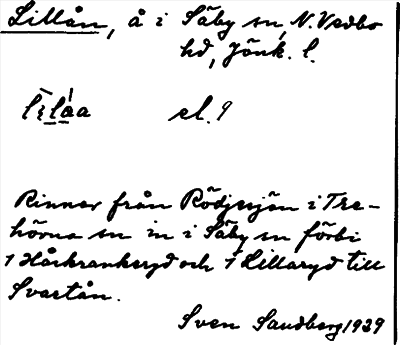 Lillån, å i Säby sn, N. Vedbo
hd, Jönk. l.
lìláa el. 9
Rinner från Rödjesjön i Tre-
hörna sn in i Säby sn förbi
1 Hårkranksryd och 1 Lillaryd till
Svartån.
Sven Sandberg 1929